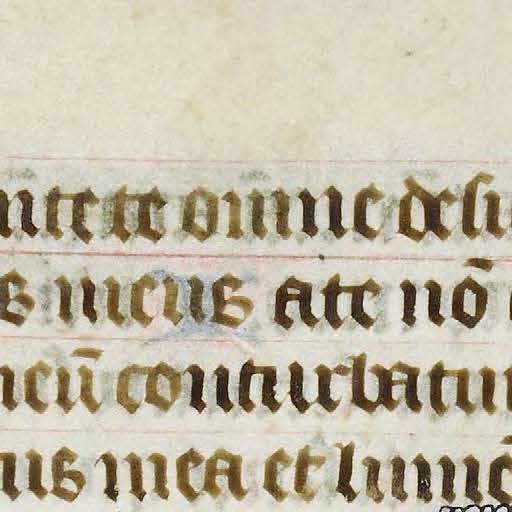 nte te omne desi
s meus a te nō
eū conturbatu
us mea et lumē